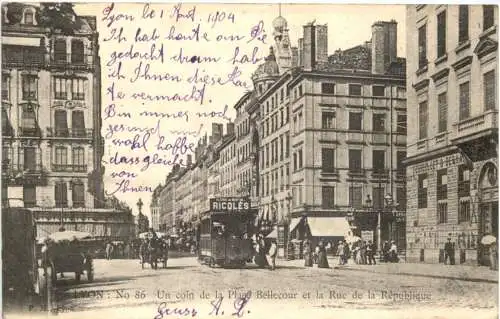 Lyon le 1 Aout. 1904
Ich hab heute om Die
gedacht drum hab
ich Ihnen diese Karte
vermacht.
Bin immer noch
gesund und
wohl hoffe
dass gleich
von
Ihnen
RICQLÈS
LYON : No 86 Un coin de la Place Bellecour et la Rue de la République
Gruss A. D.